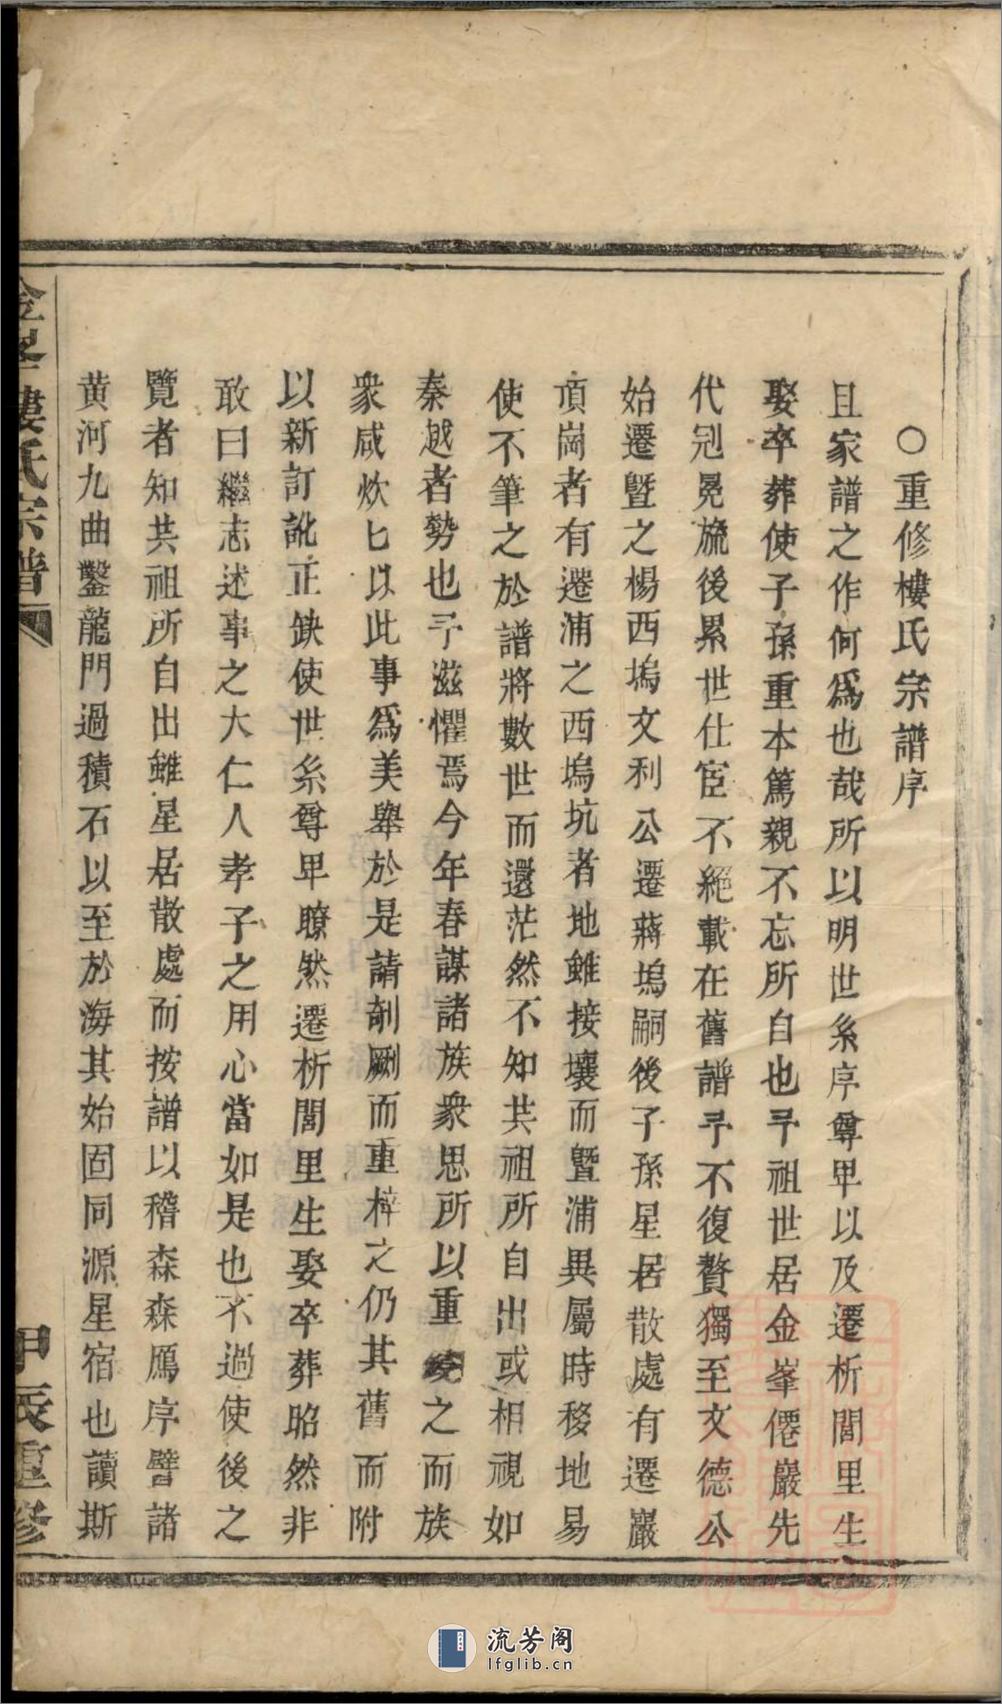 〇重修樓氏宗譜序
且家譜之作何爲也哉所以明世系序尊卑以及遷析閭里生
娶卒葬使子孫重本篤親不忘所自也予祖世居金峯僊巖先
代冠冕旒後累世仕宦不絕載在舊譜予不復贅獨至文德公
始遷暨之楊西塢文利公遷蔣塢嗣後子孫星居散處有遷巖
項崗者有遷浦之西塢坑者地雖接壤而暨浦異屬時移地易
使不筆之於譜將數世而還茫然不知共祖所自出或相視如
秦越者勢也予滋懼焉今年春謀諸族衆思所以重之而族
衆咸炊匕以此事爲美舉於是請剞劂而重梓之仍其舊而附
以新訂訛正缺使世系尊卑瞭然遷析閭里生娶卒葬昭然非
敢曰繼志述事之大仁人孝子之用心當如是也不過使後之
覽者知共祖所自出雖星居散處而按譜以稽森森鴈序譬諸
黄河九曲鑿龍門過積石以至於海其始固同源星宿也讀斯
樓氏宗譜
甲辰重修
流芳阁
lfglib.cn